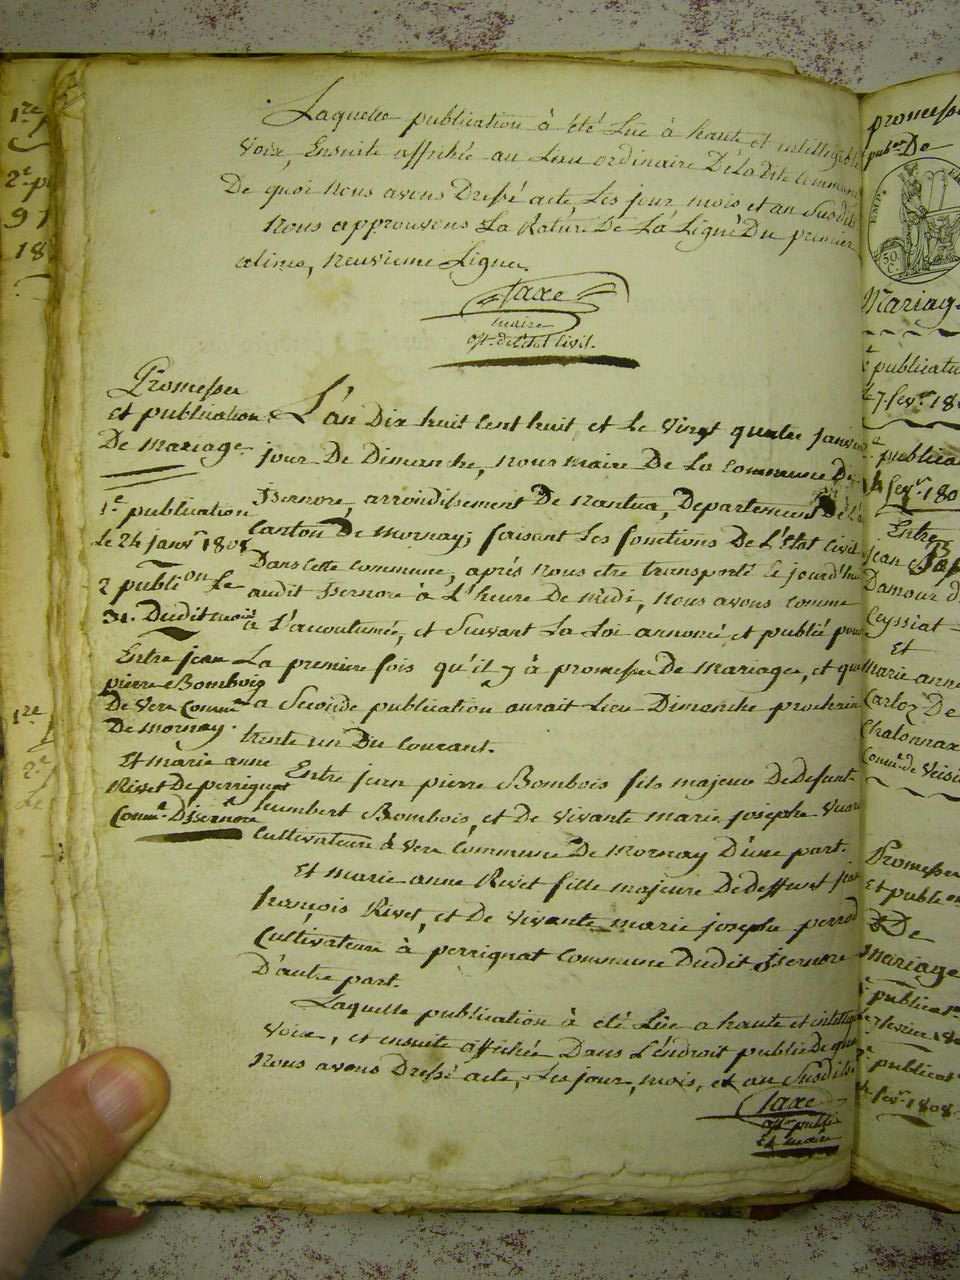 Laquelle publication à été Lüe à haute et intelligible
voix, Ensuite affichée au Lieu ordinaire De La Dite Commune
De quoi Nous avons Dressé acte Les jour mois et an Susdits
Nous approuvons La Rature De La Ligne Du premier
alinea, Neuvieme Ligne.
Taxe
maire
off. de l'etat Civil.
Promesse
et publication
De mariage
1e publication
Le 24 janvr 1808
2 publion Le
31. Dudit mois
Entre jean
pierre Bombois
De Vers Commne
De Mornay.
Et marie anne
Rivet De perrignat
Comme D'Isernore
L'an Dix huit Cent huit et Le vingt quatre janvier
jour De Dimanche, Nous maire De La Commune De
Isernore, arrondissement De Nantua, Departement De L'ain
Canton De Mornay; faisant Les fonctions De L'Etat Civil
Dans Cette Commune, après Nous etre transporté Ce jourd'hui
audit Isernore à L'heure De midi, Nous avons comme
à L'acoutumée, et Suivant La Loi annoncé et publié pour
La premiere fois qu'il y à promesse De Mariage, et que
La Seconde publication aurait Lieu Dimanche prochain
trente un Du Courant.
Entre jean pierre Bombois fils majeur De Defunt
humbert Bombois, et De Vivante marie josephe
Cultivateur à Vers Commune De Mornay D'une part.
Et marie anne Rivet fille majeure De deffunt jean
françois Rivet, et De Vivante marie josephe perrod
Cultivateur à perrignat Commune Dudit Isernore
D'autre part.
Laquelle publication à été Lüe a haute et intelligible
voix, et ensuite affichée Dans L'endroit public De quoi
Nous avons Dressé acte, Les jour, mois, et an Susdits
Taxe
offr public
et maire
1re
2e p
91
18
1re
2e
promesse
pubon De
50
C.
Mariage
publication
7 fevr 180
publica
14 fevr. 180
Entre
jean
Damour
Ceyssiat
Et
Marie anne
Carloz De
Chalonnax
Comne de
Promesse
et publion
De
Mariage
publicaton
7 fevrier 180
publicat
fevr. 1808